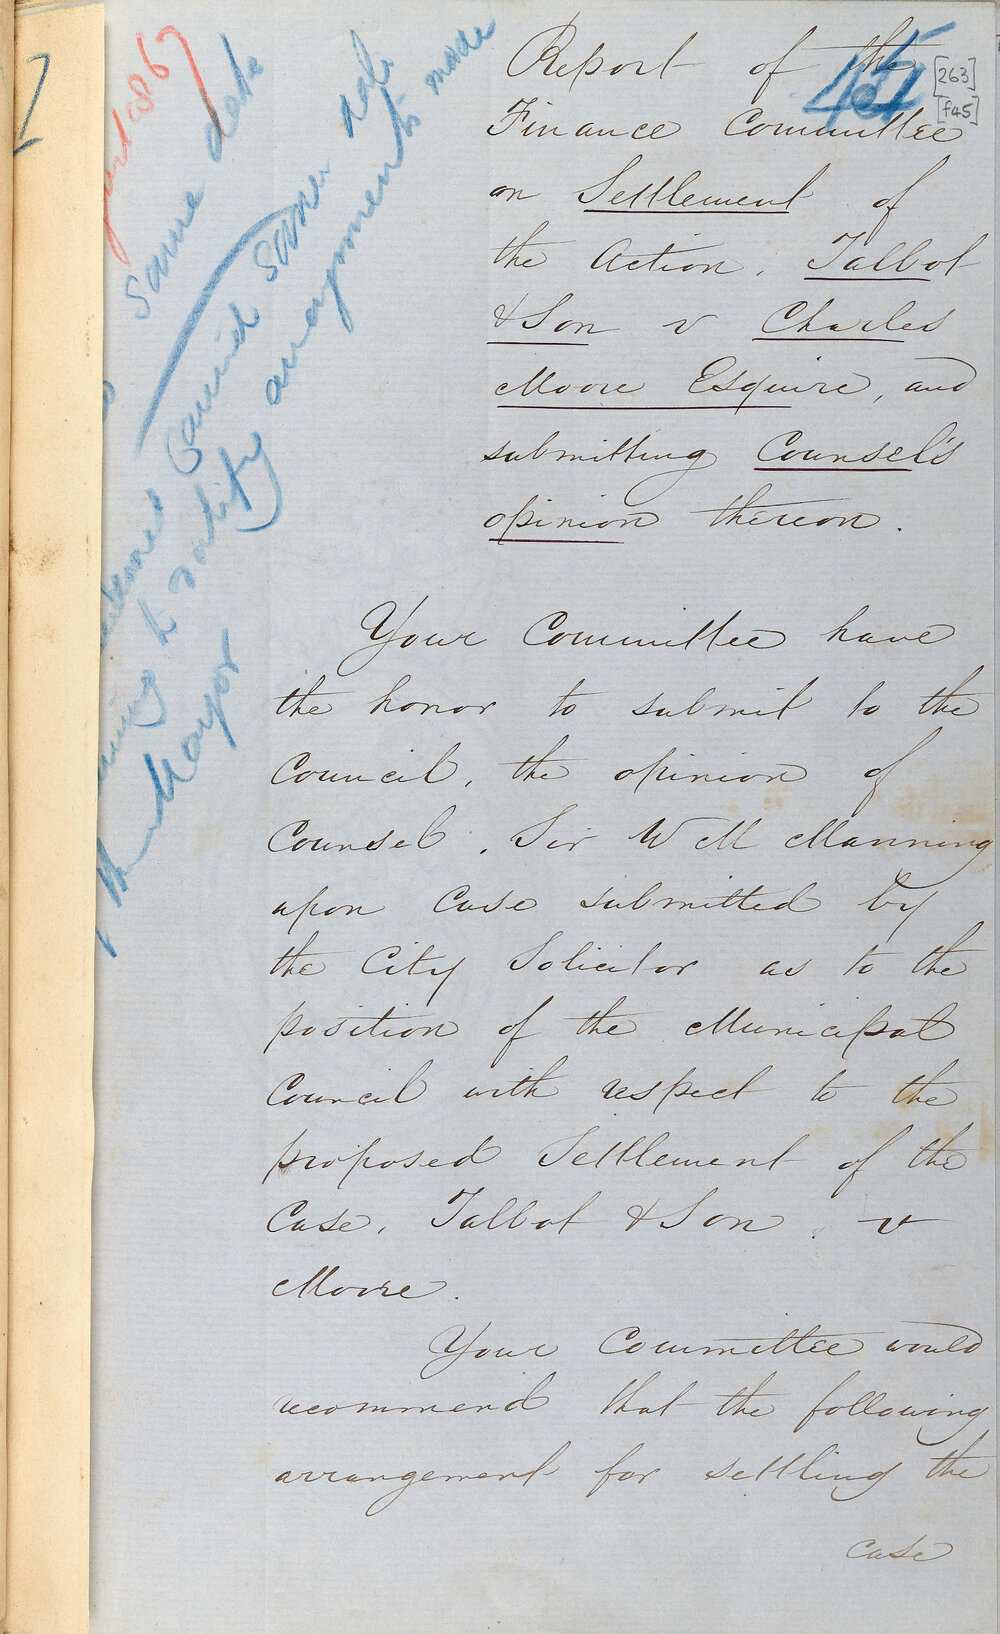 45
[263]
[f45]
Report of the
Finance Committee
on Settlement of
the Action, Talbot
& Son v Charles
Moore Esquire, and
submitting Counsel's
opinion thereon.
same date
carried same date
to ratify arrangements made
Mayor
Your Committee have
the honor to submit to the
Council, the opinion of
Counsel, Sir W M Manning
upon case submitted by
the City Solicitor as to the
position of the Municipal
Council with respect to the
proposed Settlement of the
Case, Talbot & Son v
Moore.
Your Committee would
recommend that the following
arrangement for settling the
case